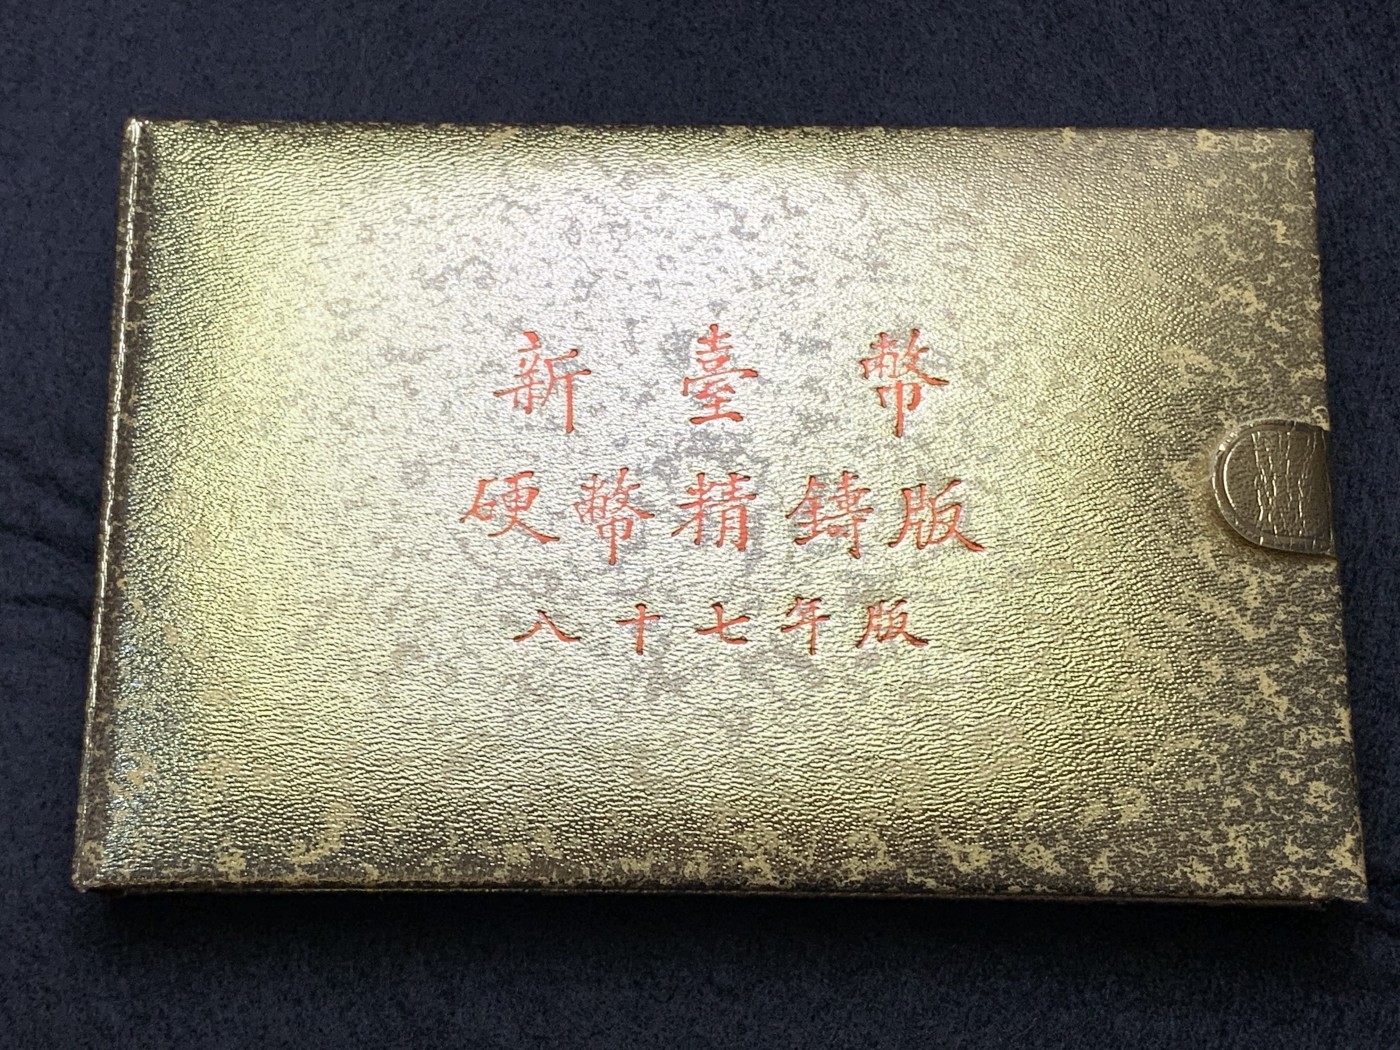 新臺幣
硬幣精鑄版
八十七年版